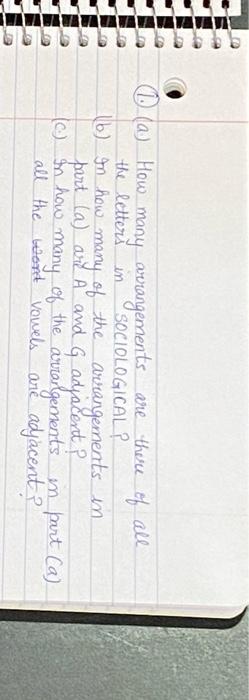 1. (a) How many arrangements are there of all
the letters in SOCIOLOGICAL?
(b) In how many of the arrangements in
part (a) are A and G adjacent?
(c) In how many of the arrangements in part (a)
all the vowels are adjacent?